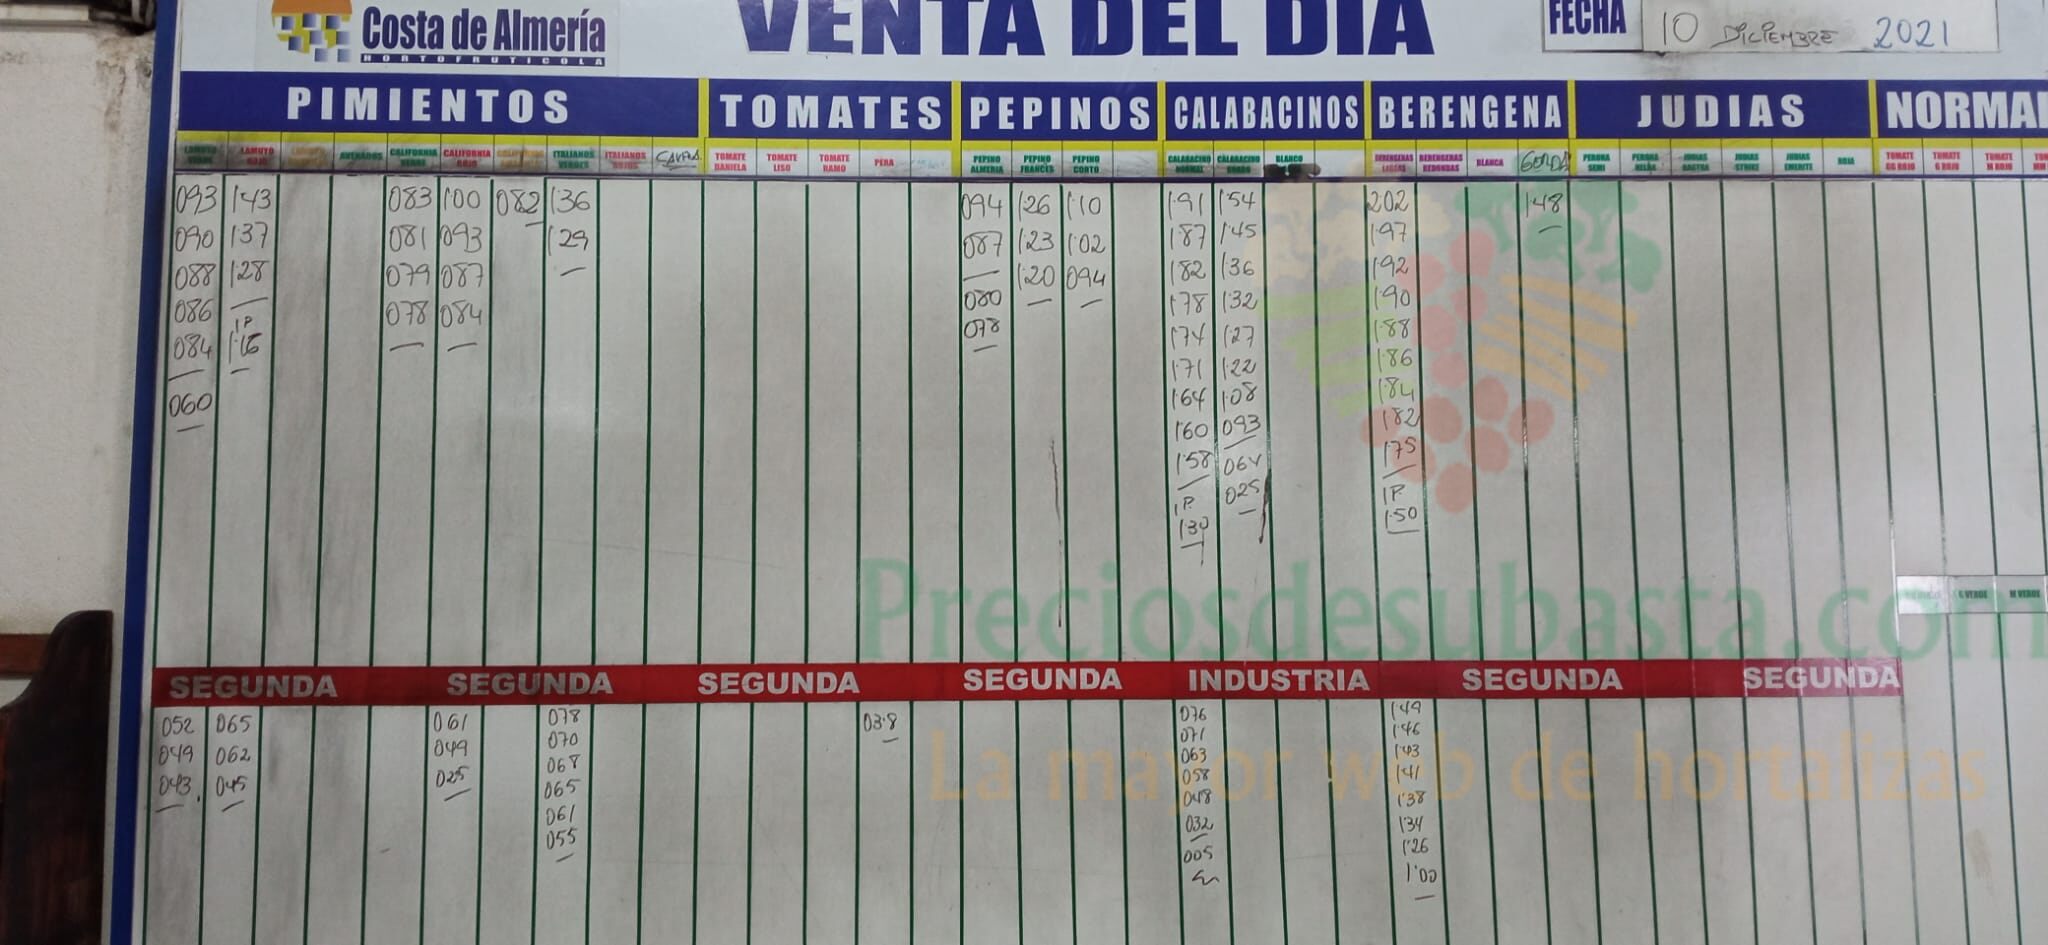 Costa de Almería
HORTOFRUTICOLA
VENTA DEL DIA
FECHA 10 DICIEMBRE 2021
PIMIENTOS TOMATES PEPINOS CALABACINOS BERENGENA JUDIAS NORMAL
LAMUYO ROJO CALIFORNIA VERDE CALIFORNIA ROJO ITALIANOS VERDES ITALIANOS ROJOS TOMATE DANIELA TOMATE LISO TOMATE RAMO PERA PEPINO ALMERIA PEPINO FRANCES PEPINO CORTO CALABACINO NORMAL CALABACINO GORDO BLANCO BERENGENAS LARGAS BERENGENAS REDONDAS BLANCA GORDA PERONA SEMI PERONA HELDA JUDIAS STRIKE JUDIAS EMERITE ROJA TOMATE GG ROJO TOMATE G ROJO TOMATE M ROJO
093 1'43 083 1'00 082 1'36 094 1'26 1'10 1'91 1'54 202 1'48
090 1'37 081 093 1'29 087 1'23 1'02 1'87 1'45 1'97
088 1'28 079 087 1'20 094 1'82 1'36 1'92
086 1P 078 084 080 1'78 1'32 1'90
084 1'16 078 1'74 1'27 1'88
1'71 1'22 1'86
060 1'64 1'08 1'84
1'60 093 1'82
1'58 064 1'75
1P 025 1P
1'30 1'50
G VERDE M VERDE
Preciosdesubasta.com
SEGUNDA SEGUNDA SEGUNDA SEGUNDA INDUSTRIA SEGUNDA SEGUNDA
052 065 061 078 03'8 076 1'49
049 062 049 070 071 1'46
043 045 025 068 063 1'43
065 058 1'41
061 048 1'38
055 032 1'34
005 1'26
1'00
La mayor web de hortalizas